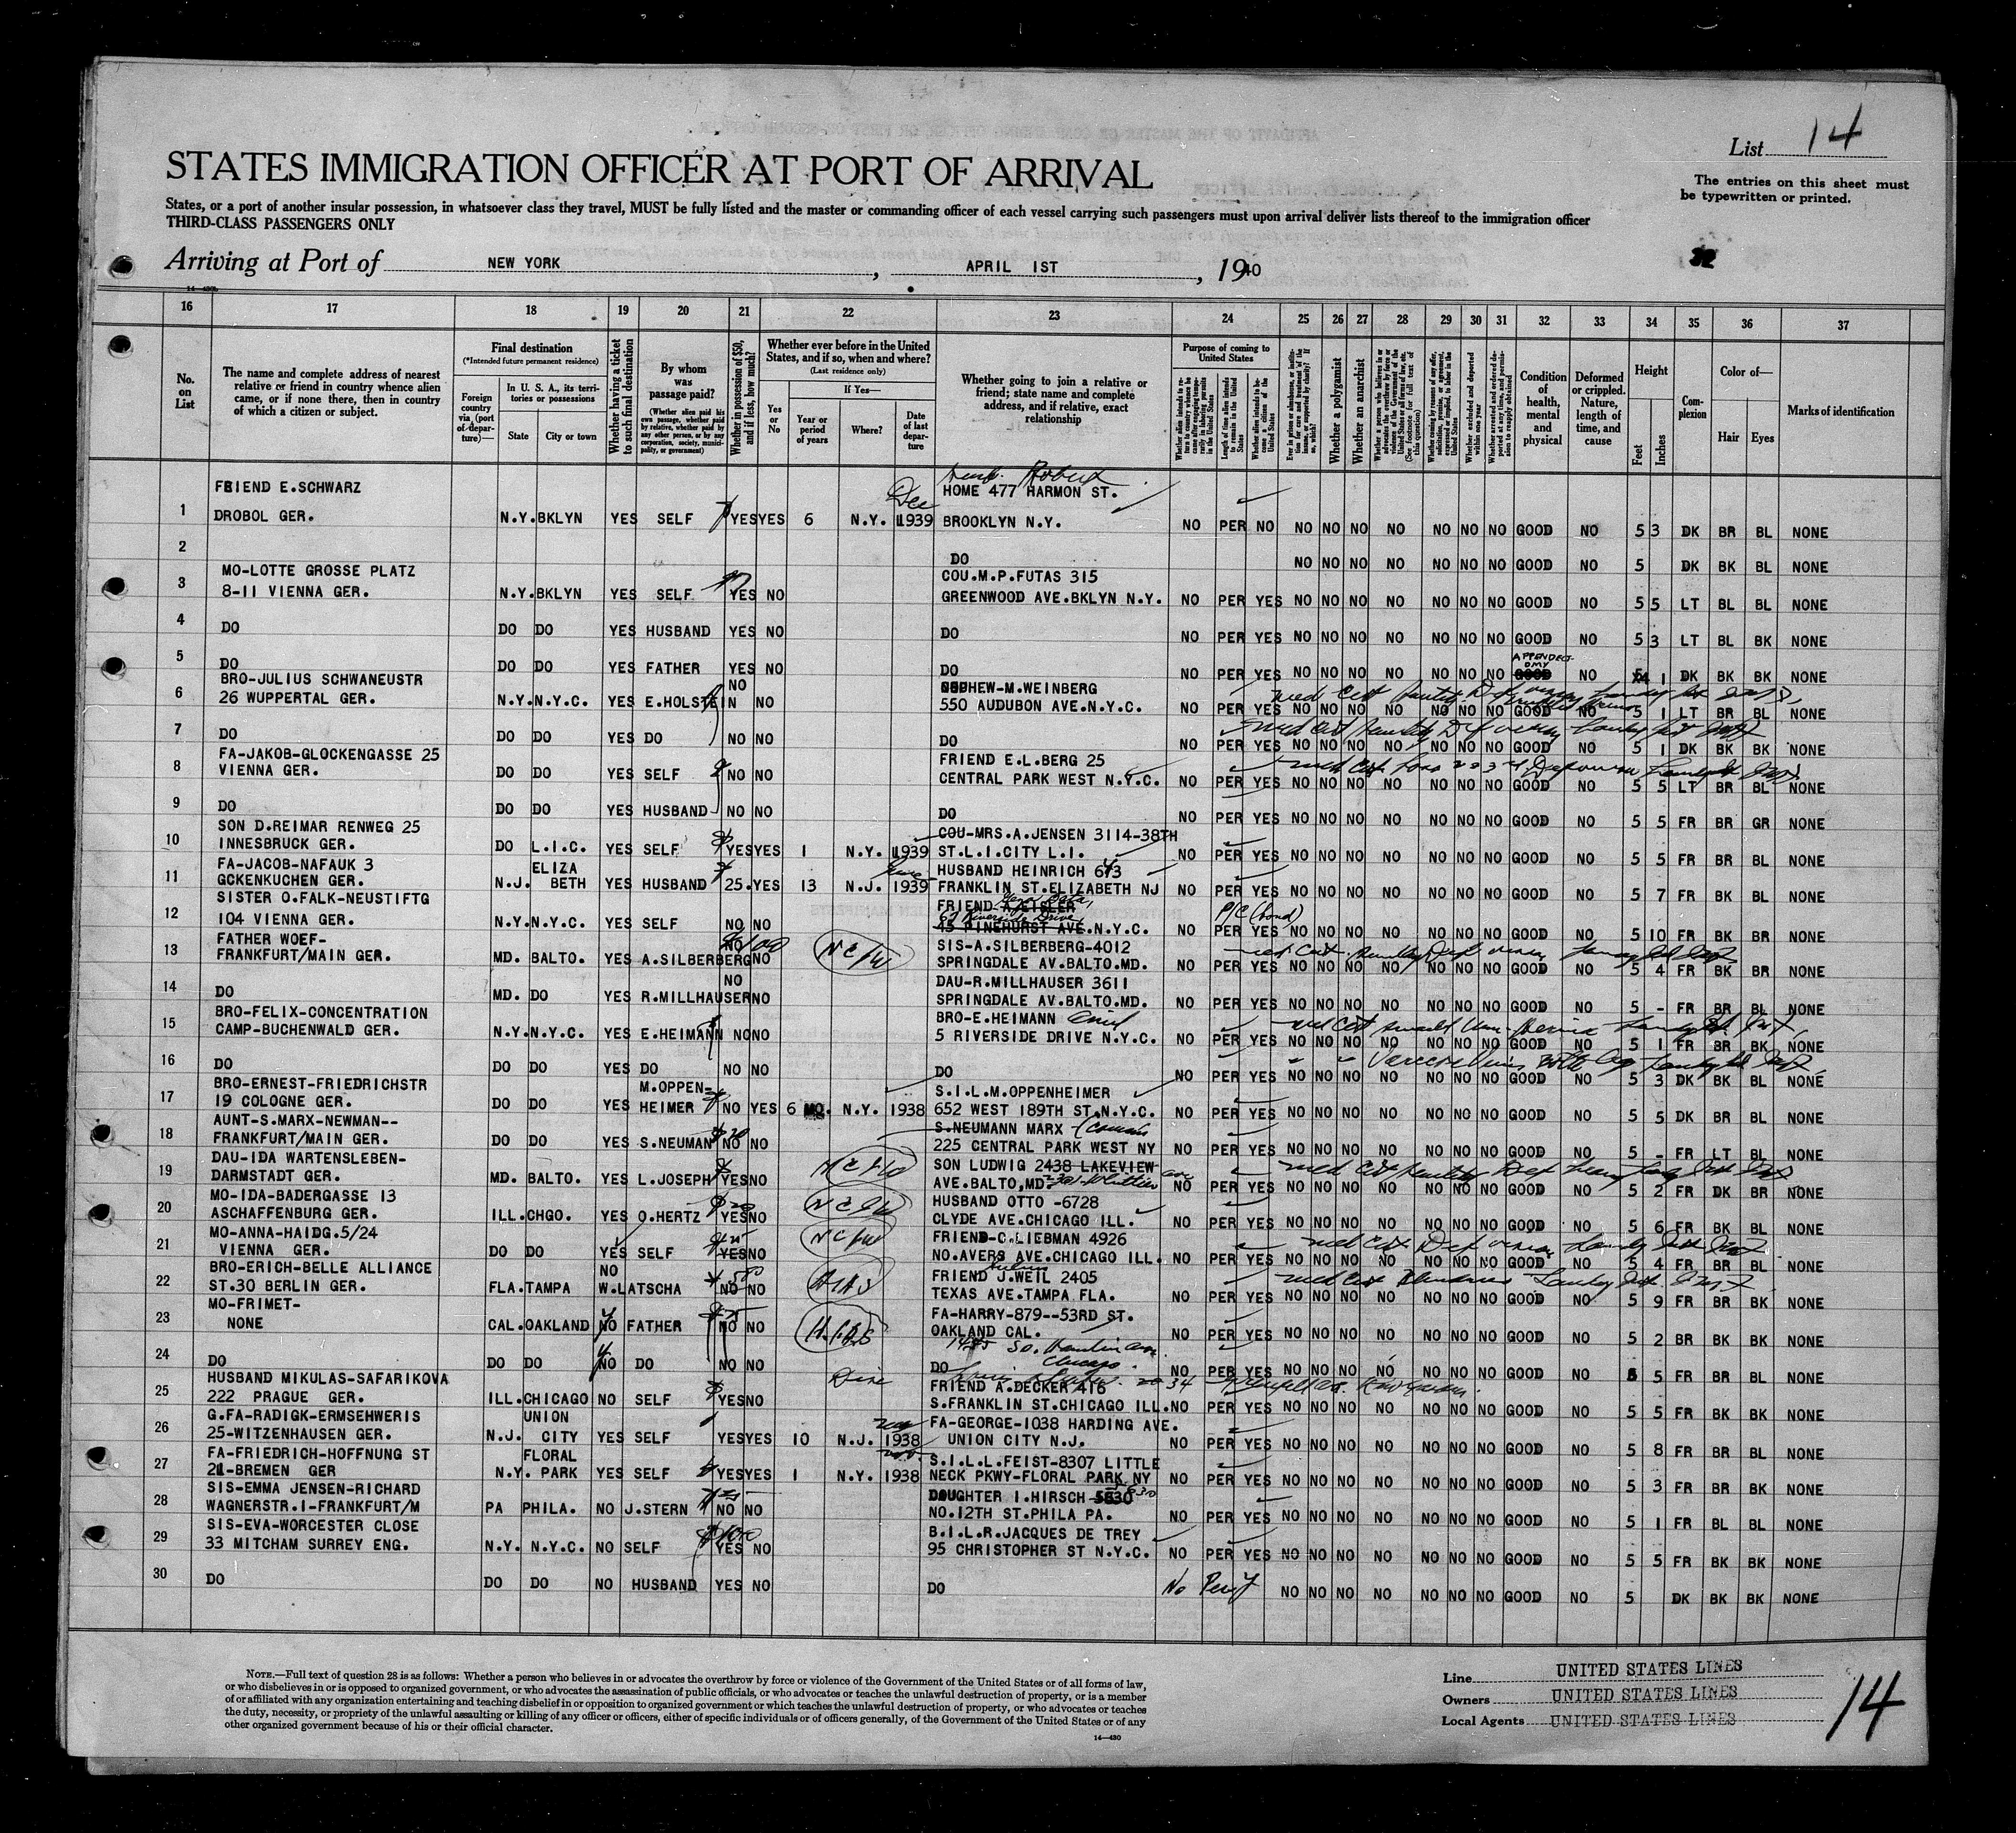 List 14
STATES IMMIGRATION OFFICER AT PORT OF ARRIVAL
The entries on this sheet must
be typewritten or printed.
States, or a port of another insular possession, in whatsoever class they travel, MUST be fully listed and the master or commanding officer of each vessel carrying such passengers must upon arrival deliver lists thereof to the immigration officer
THIRD-CLASS PASSENGERS ONLY
Arriving at Port of NEW YORK, APRIL 1ST, 1940
16 17 18 19 20 21 22 23 24 25 26 27 28 29 30 31 32 33 34 35 36 37
No. on List
The name and complete address of nearest relative or friend in country whence alien came, or if none there, then in country of which a citizen or subject.
Final destination
(*Intended future permanent residence)
Foreign country via (port of departure)—
In U. S. A., its territories or possessions
State City or town
Whether having a ticket to such final destination
By whom was passage paid?
(Whether alien paid his own passage, whether paid by relative, whether paid by any other person, or by any corporation, society, municipality, or government)
Whether in possession of $50, and if less, how much?
Whether ever before in the United States, and if so, when and where?
(Last residence only)
Yes or No
If Yes—
Year or period of years
Where?
Date of last departure
Whether going to join a relative or friend; state name and complete address, and if relative, exact relationship
Purpose of coming to United States
Length of time alien intends to remain in the United States
Whether alien intends to become a citizen of the United States
Whether a polygamist
Whether an anarchist
Condition of health, mental and physical
Deformed or crippled. Nature, length of time, and cause
Height
Feet Inches
Complexion
Color of—
Hair Eyes
Marks of identification
FRIEND E.SCHWARZ HOME 477 HARMON ST.
1 DROBOL GER. N.Y. BKLYN YES SELF YES YES 6 N.Y. Dec 1939 BROOKLYN N.Y. NO PER NO NO NO NO NO NO NO NO GOOD NO 5 3 DK BR BL NONE
2 DO NO NO NO NO NO NO NO GOOD NO 5 DK BK BL NONE
MO-LOTTE GROSSE PLATZ COU.M.P.FUTAS 315
3 8-11 VIENNA GER. N.Y. BKLYN YES SELF YES NO GREENWOOD AVE.BKLYN N.Y. NO PER YES NO NO NO NO NO NO NO GOOD NO 5 5 LT BL BL NONE
4 DO DO DO YES HUSBAND YES NO DO NO PER YES NO NO NO NO NO NO NO GOOD NO 5 3 LT BL BK NONE
5 DO DO DO YES FATHER YES NO DO NO PER YES NO NO NO NO NO NO NO APPENDECTOMY NO 4 1 DK BK BK NONE
BRO-JULIUS SCHWANEUSTR NO NEPHEW-M.WEINBERG
6 26 WUPPERTAL GER. N.Y. N.Y.C. YES E.HOLSTEIN NO 550 AUDUBON AVE.N.Y.C. NO PER YES NO NO NO NO NO NO NO GOOD NO 5 1 LT BR BL NONE
7 DO DO DO YES DO NO NO DO NO PER YES NO NO NO NO NO NO NO GOOD NO 5 1 DK BK BK NONE
FA-JAKOB-GLOCKENGASSE 25 FRIEND E.L.BERG 25
8 VIENNA GER. DO DO YES SELF NO NO CENTRAL PARK WEST N.Y.C. NO PER YES NO NO NO NO NO NO NO GOOD NO 5 5 LT BR BL NONE
9 DO DO DO YES HUSBAND NO NO DO NO PER YES NO NO NO NO NO NO NO GOOD NO 5 5 FR BR GR NONE
SON D.REIMAR RENWEG 25 COU-MRS.A.JENSEN 3114-38TH
10 INNESBRUCK GER. DO L.I.C. YES SELF YES YES 1 N.Y. 1939 ST.L.I.CITY L.I. NO PER YES NO NO NO NO NO NO NO GOOD NO 5 5 FR BR BL NONE
FA-JACOB-NAFAUK 3 ELIZA HUSBAND HEINRICH 673
11 GCKENKUCHEN GER. N.J. BETH YES HUSBAND 25. YES 13 N.J. 1939 FRANKLIN ST.ELIZABETH NJ NO PER YES NO NO NO NO NO NO NO GOOD NO 5 7 FR BK BL NONE
SISTER O.FALK-NEUSTIFTG FRIEND A.EISLER P/C (bond)
67 Riverside Drive
12 104 VIENNA GER. N.Y. N.Y.C. YES SELF NO NO 45 PINEHURST AVE.N.Y.C. NO PER YES NO NO NO NO NO NO NO GOOD NO 5 10 FR BK BR NONE
FATHER WOEF- NO SIS-A.SILBERBERG-4012
13 FRANKFURT/MAIN GER. MD. BALTO. YES A.SILBERBERG NO SPRINGDALE AV.BALTO.MD. NO PER YES NO NO NO NO NO NO NO GOOD NO 5 4 FR BK BR NONE
NO DAU-R.MILLHAUSER 3611
14 DO MD. DO YES R.MILLHAUSER NO SPRINGDALE AV.BALTO.MD. NO PER YES NO NO NO NO NO NO NO GOOD NO 5 - FR BR BL NONE
BRO-FELIX-CONCENTRATION BRO-E.HEIMANN Emil
15 CAMP-BUCHENWALD GER. N.Y. N.Y.C. YES E.HEIMANN NO NO 5 RIVERSIDE DRIVE N.Y.C. NO PER YES NO NO NO NO NO NO NO GOOD NO 5 1 FR BR BK NONE
16 DO DO DO YES DO NO NO DO NO PER YES NO NO NO NO NO NO NO GOOD NO 5 3 DK BK BL NONE
BRO-ERNEST-FRIEDRICHSTR M.OPPEN= S.I.L.M.OPPENHEIMER
17 19 COLOGNE GER. DO DO YES HEIMER NO YES 6 MO. N.Y. 1938 652 WEST 189TH ST.N.Y.C. NO PER YES NO NO NO NO NO NO NO GOOD NO 5 5 DK BR BL NONE
AUNT-S.MARX-NEWMAN-- S.NEUMANN MARX (Cousin
18 FRANKFURT/MAIN GER. DO DO YES S.NEUMAN NO NO 225 CENTRAL PARK WEST NY NO PER YES NO NO NO NO NO NO NO GOOD NO 5 - FR LT BL NONE
DAU-IDA WARTENSLEBEN- SON LUDWIG 2438 LAKEVIEW
19 DARMSTADT GER. MD. BALTO. YES L.JOSEPH YES NO AVE.BALTO,MD NO PER YES NO NO NO NO NO NO NO GOOD NO 5 2 FR DK BR NONE
MO-IDA-BADERGASSE 13 HUSBAND OTTO -6728
20 ASCHAFFENBURG GER. ILL. CHGO. YES O.HERTZ YES NO CLYDE AVE.CHICAGO ILL. NO PER YES NO NO NO NO NO NO NO GOOD NO 5 6 FR BK BL NONE
MO-ANNA-HAIDG.5/24 FRIEND-C.LIEBMAN 4926
21 VIENNA GER. DO DO YES SELF YES NO NO.AVERS AVE.CHICAGO ILL. NO PER YES NO NO NO NO NO NO NO GOOD NO 5 4 FR BR BL NONE
BRO-ERICH-BELLE ALLIANCE NO FRIEND J.WEIL 2405
22 ST.30 BERLIN GER. FLA. TAMPA W.LATSCHA NO NO HIAS TEXAS AVE.TAMPA FLA. NO PER YES NO NO NO NO NO NO NO GOOD NO 5 9 FR BR BK NONE
MO-FRIMET- FA-HARRY-879--53RD ST.
23 NONE CAL. OAKLAND NO FATHER NO NO HIAS OAKLAND CAL. NO PER YES NO NO NO NO NO NO NO GOOD NO 5 2 BR BK BK NONE
24 DO DO DO NO DO NO NO DO NO PER YES NO NO NO NO NO NO NO GOOD NO 5 5 FR BR BL NONE
HUSBAND MIKULAS-SAFARIKOVA FRIEND A.DECKER 416
25 222 PRAGUE GER. ILL. CHICAGO NO SELF YES NO S.FRANKLIN ST.CHICAGO ILL. NO PER YES NO NO NO NO NO NO NO GOOD NO 5 5 FR BK BK NONE
G.FA-RADIGK-ERMSEHWERIS UNION FA-GEORGE-1038 HARDING AVE.
26 25-WITZENHAUSEN GER. N.J. CITY YES SELF YES YES 10 N.J. 1938 UNION CITY N.J. NO PER YES NO NO NO NO NO NO NO GOOD NO 5 8 FR BR BL NONE
FA-FRIEDRICH-HOFFNUNG ST FLORAL S.I.L.L.FEIST-8307 LITTLE
27 21-BREMEN GER N.Y. PARK YES SELF YES YES 1 N.Y. 1938 NECK PKWY-FLORAL PARK NY NO PER YES NO NO NO NO NO NO NO GOOD NO 5 3 FR BR BK NONE
SIS-EMMA JENSEN-RICHARD DAUGHTER I.HIRSCH 5630
28 WAGNERSTR.I-FRANKFURT/M PA PHILA. NO J.STERN NO NO NO.12TH ST.PHILA PA. NO PER YES NO NO NO NO NO NO NO GOOD NO 5 1 FR BL BL NONE
SIS-EVA-WORCESTER CLOSE B.I.L.R.JACQUES DE TREY
29 33 MITCHAM SURREY ENG. N.Y. N.Y.C. NO SELF YES NO 95 CHRISTOPHER ST N.Y.C. NO PER YES NO NO NO NO NO NO NO GOOD NO 5 5 FR BK BK NONE
30 DO DO DO NO HUSBAND YES NO DO No NO NO NO NO NO NO NO GOOD NO 5 DK BK BK NONE
NOTE.—Full text of question 28 is as follows: Whether a person who believes in or advocates the overthrow by force or violence of the Government of the United States or of all forms of law,
or who disbelieves in or is opposed to organized government, or who advocates the assassination of public officials, or who advocates or teaches the unlawful destruction of property, or is a member
of or affiliated with any organization entertaining and teaching disbelief in or opposition to organized government or which teaches the unlawful destruction of property, or who advocates or teaches
the duty, necessity, or propriety of the unlawful assaulting or killing of any officer or officers, either of specific individuals or of officers generally, of the Government of the United States or of any
other organized government because of his or their official character.
14—430
Line UNITED STATES LINES
Owners UNITED STATES LINES
Local Agents UNITED STATES LINES
14